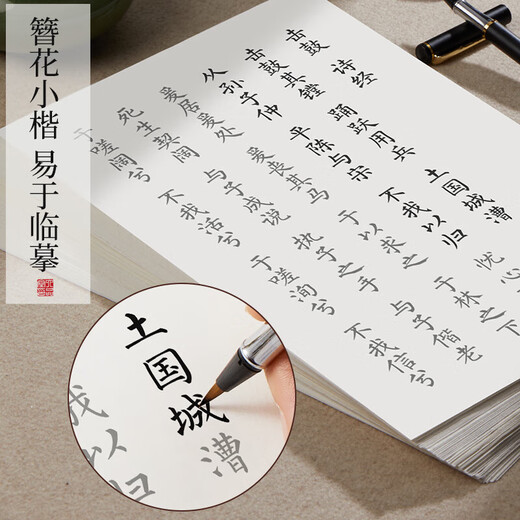 簪花小楷 易于临摹
击鼓 诗经
击鼓其镗 踊跃用兵 土国城漕
从孙子仲 平陈与宋 不我以归 忧心
爰居爰处 爰丧其马 于以求之 于林之下
死生契阔 与子成说 执子之手 与子偕老
于嗟阔兮 不我活兮 于嗟洵兮 不我信兮
土国城漕
我以归